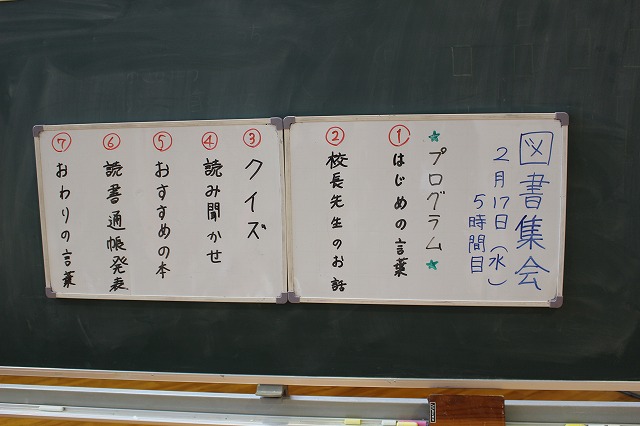 図書集会
2月17日(水)
5時間目
★プログラム★
①はじめの言葉
②校長先生のお話
③クイズ
④読み聞かせ
⑤おすすめの本
⑥読書通帳発表
⑦おわりの言葉